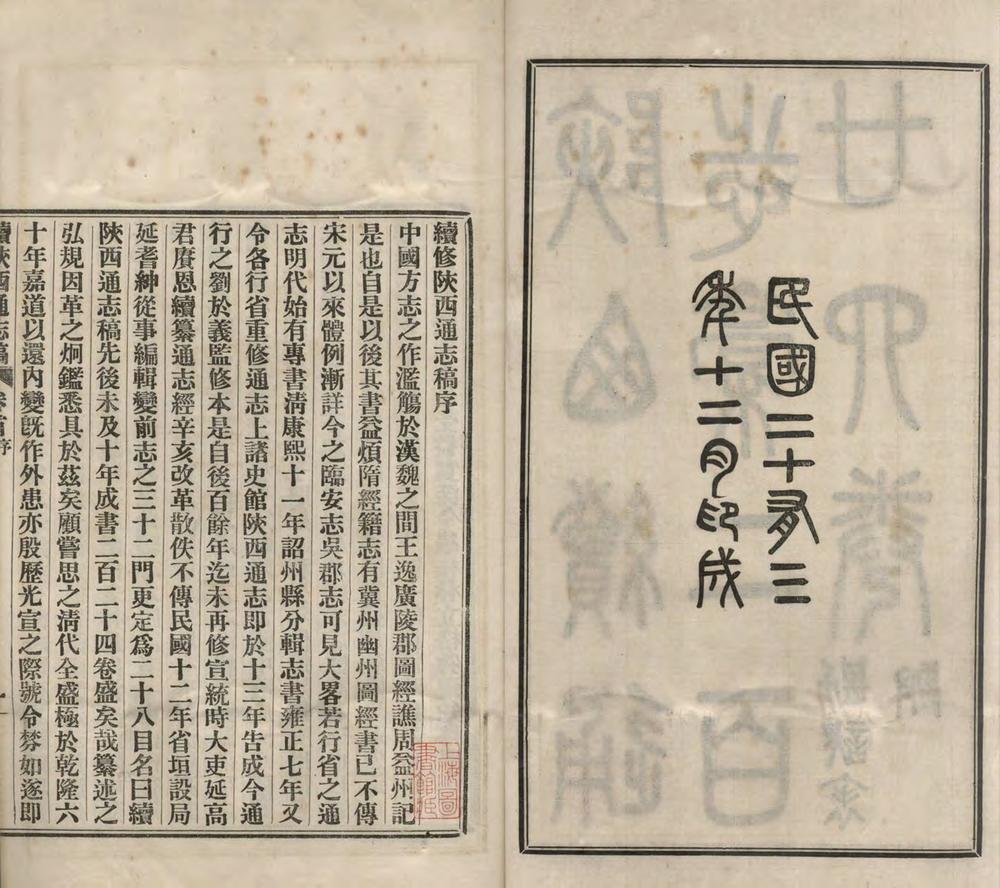 民國二十有三
年十二月印成
續修陝西通志稿序
中國方志之作濫觴於漢魏之間王逸廣陵郡圖經譙周益州記
是也自是以後其書益煩隋經籍志有冀州幽州圖經書已不傳
宋元以來體例漸詳今之臨安志吳郡志可見大畧若行省之通
志明代始有專書清康熙十一年詔州縣分輯志書雍正七年又
令各行省重修通志上諸史館陝西通志即於十三年告成今通
行之劉於義監修本是自後百餘年迄未再修宣統時大吏延高
君賡恩續纂通志經辛亥改革散佚不傳民國十二年省垣設局
延耆紳從事編輯變前志之三十二門更定爲二十八目名曰續
陝西通志稿先後未及十年成書二百二十四卷盛矣哉纂述之
弘規因革之炯鑑悉具於茲矣顧嘗思之清代全盛極於乾隆六
十年嘉道以還內變旣作外患亦殷歷光宣之際號令棼如遂即
續陝西通志稿 卷首序 一
上海圖書館藏